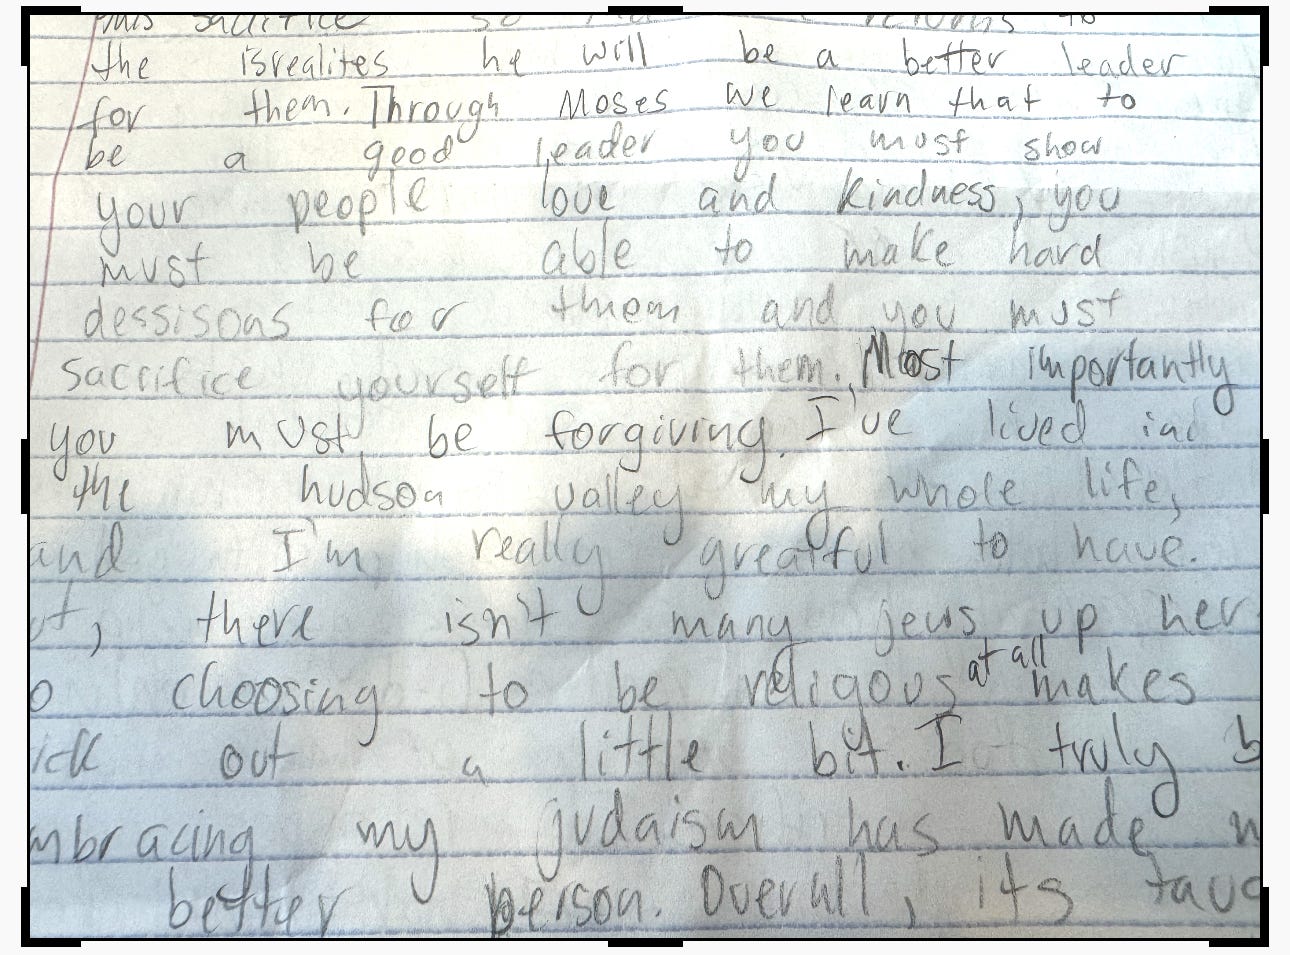 sacrifice so returns to
the isrealites he will be a better leader
for them. Through Moses we learn that to
be a good leader you must show
your people love and kindness, you
must be able to make hard
dessisons for them and you must
sacrifice yourself for them. Most importantly
you must be forgiving. I've lived in
the hudson valley my whole life,
and I'm really greatful to have.
there isn't many jews up
choosing to be religous at all makes
out a little bit. I truly
my judaism has made
better person. Overall, its